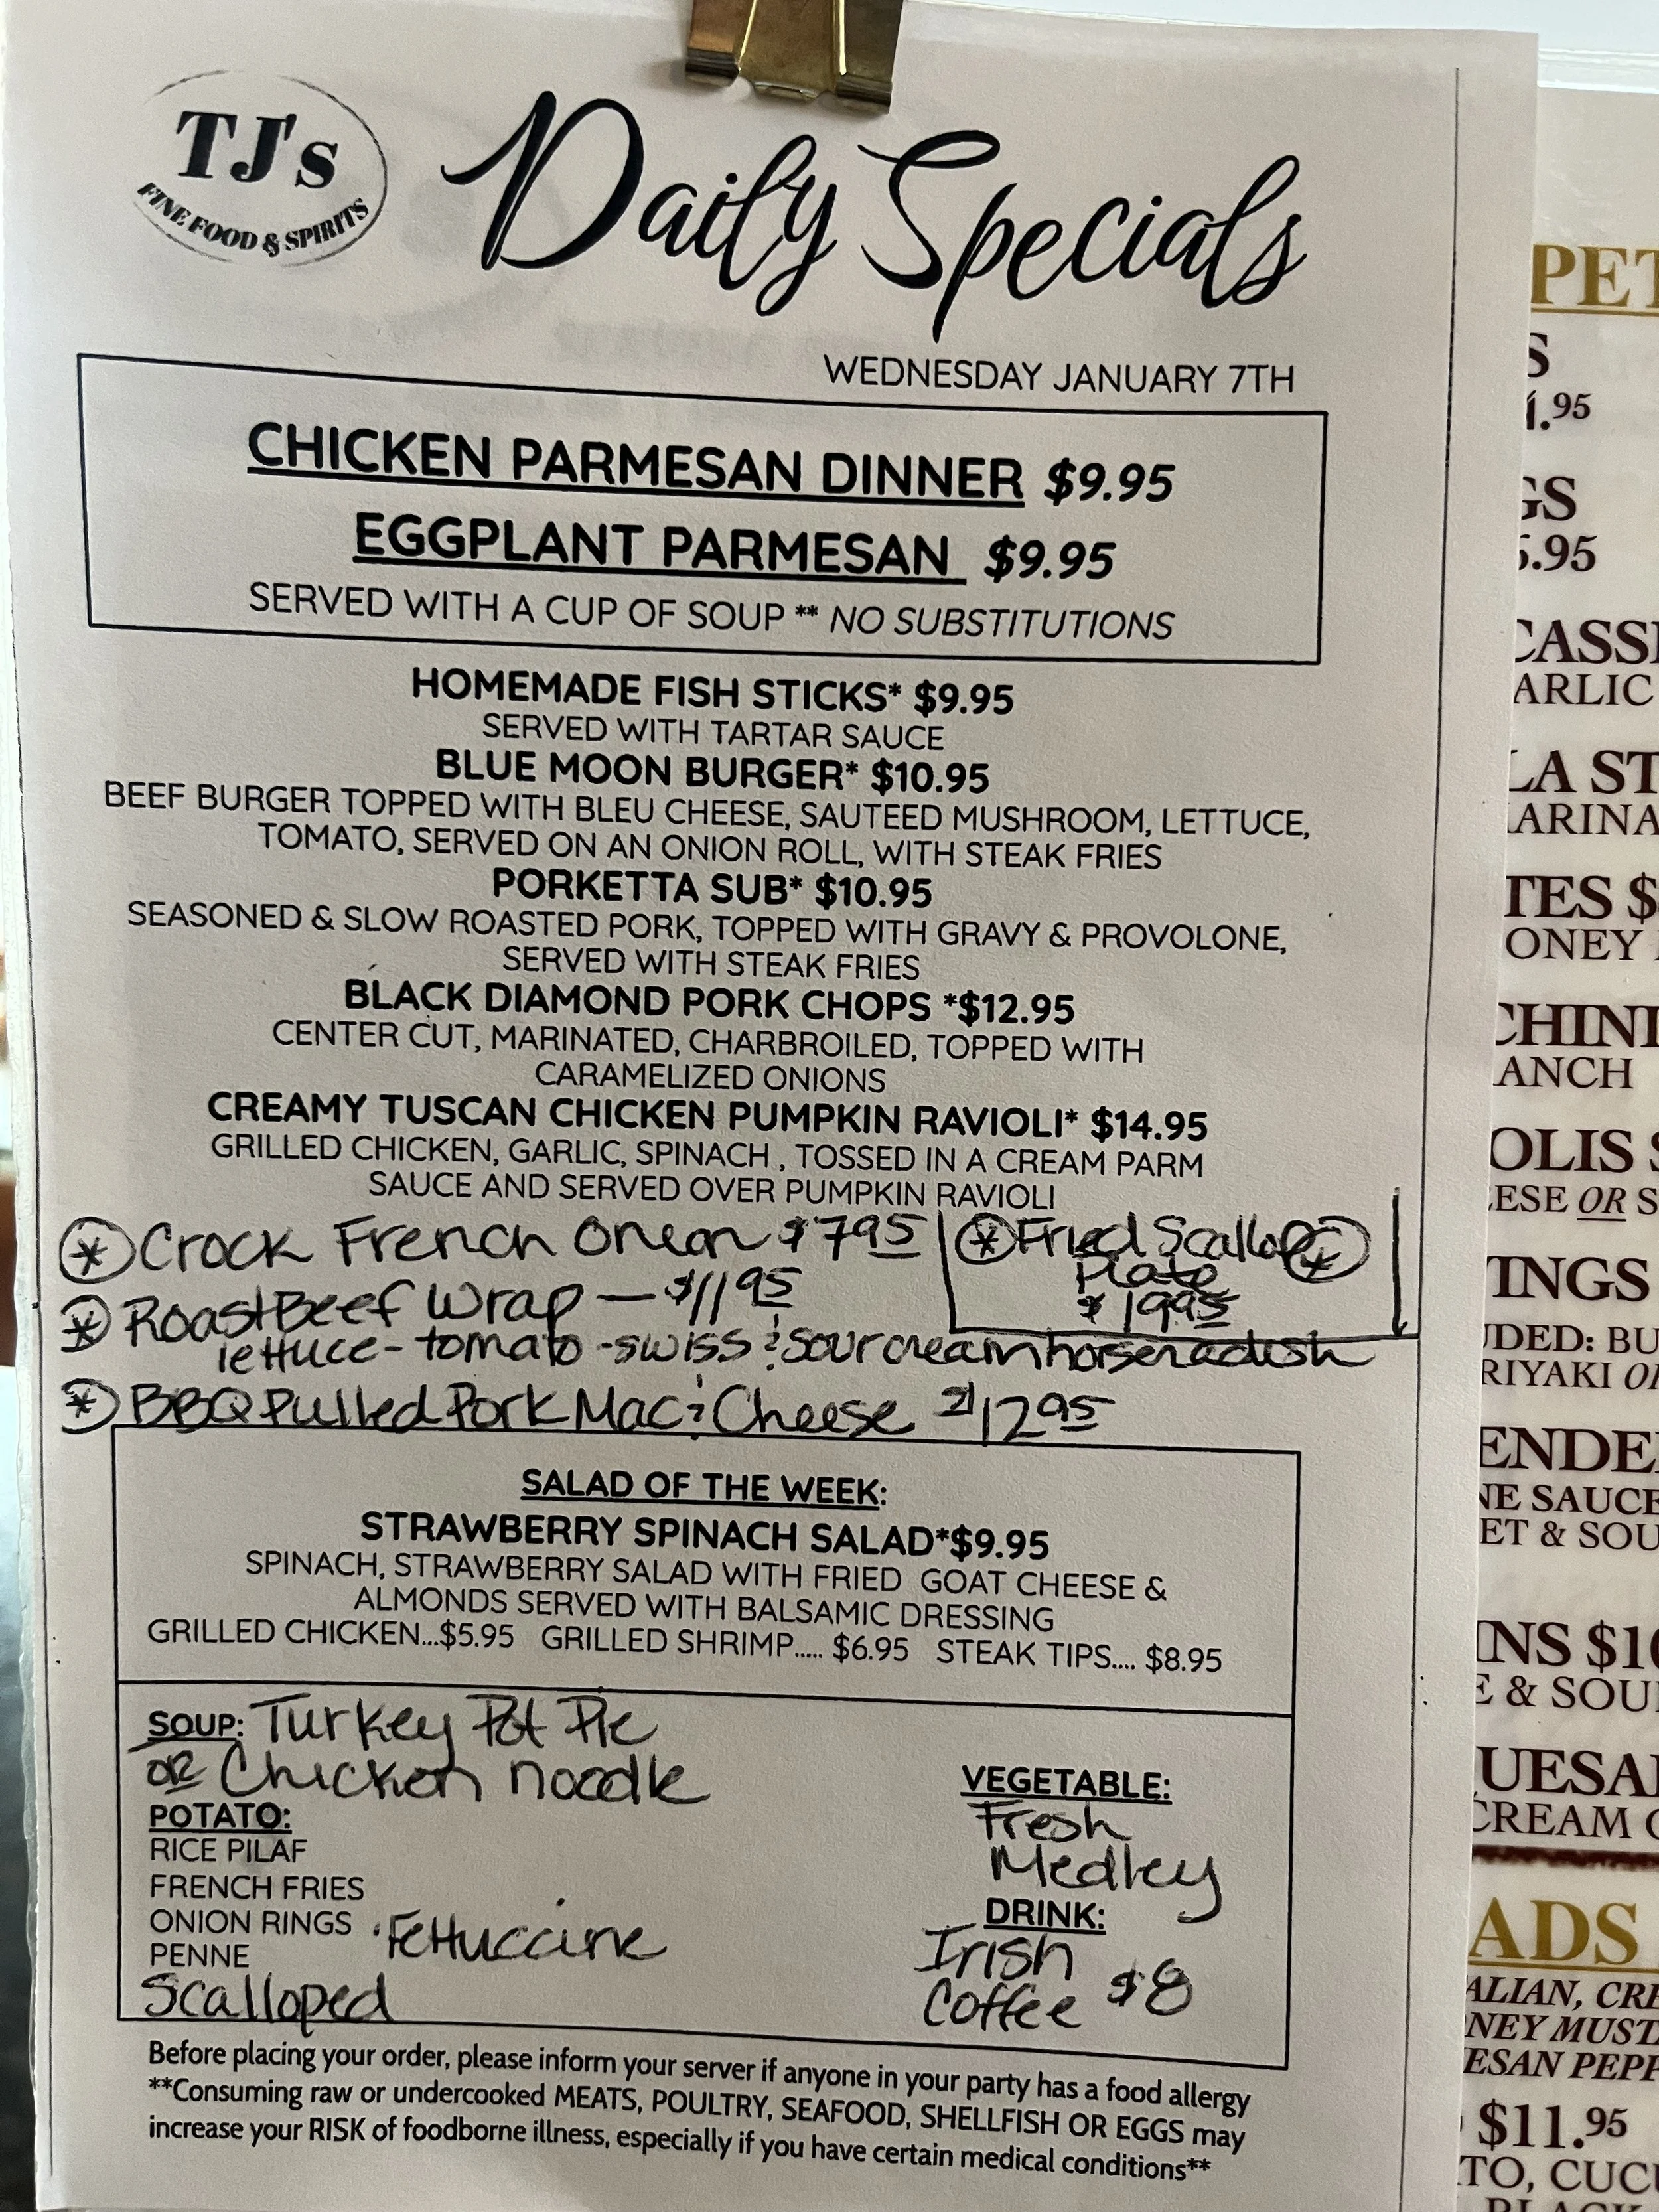 TJ's
FINE FOOD & SPIRITS
Daily Specials
WEDNESDAY JANUARY 7TH
CHICKEN PARMESAN DINNER $9.95
EGGPLANT PARMESAN $9.95
SERVED WITH A CUP OF SOUP ** NO SUBSTITUTIONS
HOMEMADE FISH STICKS* $9.95
SERVED WITH TARTAR SAUCE
BLUE MOON BURGER* $10.95
BEEF BURGER TOPPED WITH BLEU CHEESE, SAUTEED MUSHROOM, LETTUCE,
TOMATO, SERVED ON AN ONION ROLL, WITH STEAK FRIES
PORKETTA SUB* $10.95
SEASONED & SLOW ROASTED PORK, TOPPED WITH GRAVY & PROVOLONE,
SERVED WITH STEAK FRIES
BLACK DIAMOND PORK CHOPS *$12.95
CENTER CUT, MARINATED, CHARBROILED, TOPPED WITH
CARAMELIZED ONIONS
CREAMY TUSCAN CHICKEN PUMPKIN RAVIOLI* $14.95
GRILLED CHICKEN, GARLIC, SPINACH , TOSSED IN A CREAM PARM
SAUCE AND SERVED OVER PUMPKIN RAVIOLI
* Crock French Onion $7.95
* Fried Scallop *
Plate
$19.95
* Roast Beef Wrap — $11.95
lettuce - tomato - swiss & sour cream horseradish
* BBQ Pulled Pork Mac & Cheese $12.95
SALAD OF THE WEEK:
STRAWBERRY SPINACH SALAD*$9.95
SPINACH, STRAWBERRY SALAD WITH FRIED GOAT CHEESE &
ALMONDS SERVED WITH BALSAMIC DRESSING
GRILLED CHICKEN...$5.95 GRILLED SHRIMP..... $6.95 STEAK TIPS.... $8.95
SOUP: Turkey Pot Pie
OR Chicken noodle
POTATO:
RICE PILAF
FRENCH FRIES
ONION RINGS
PENNE
· Fettuccine
Scalloped
VEGETABLE:
Fresh
Medley
DRINK:
Irish
Coffee $8
Before placing your order, please inform your server if anyone in your party has a food allergy
**Consuming raw or undercooked MEATS, POULTRY, SEAFOOD, SHELLFISH OR EGGS may
increase your RISK of foodborne illness, especially if you have certain medical conditions**
PET
S
1.95
GS
5.95
CASS
ARLIC
LA ST
ARINA
TES $
ONEY
CHINI
ANCH
OLIS
ESE OR S
INGS
UDED: BU
RIYAKI O
ENDE
NE SAUCE
ET & SOU
INS $10
E & SOU
UESA
CREAM
ADS
ALIAN, CRE
NEY MUST
ESAN PEPP
$11.95
TO, CUCU